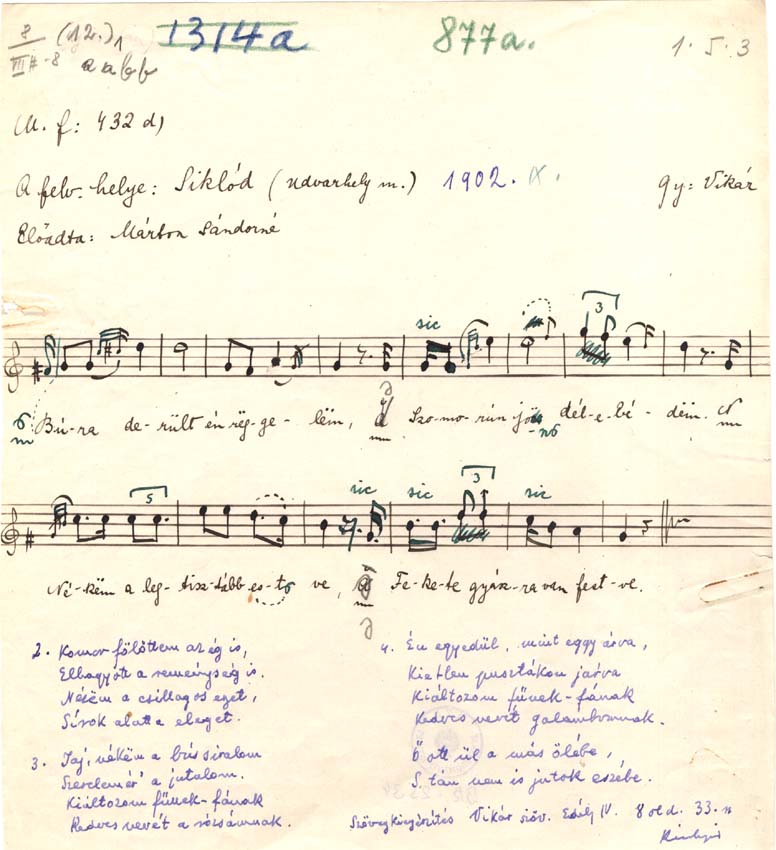 8 (12.) 1 1314a 877a. 1. 5. 3
VII #-8 a a b b
M. f: 432 d)
A felv. helye: Siklód (Udvarhely m.) 1902. IX. Gy: Vikár
Előadta: Márton Sándorné
sic 3
Bú-ra de-rült én rëg-ge-lëm, Szo-mo-rún jö dél-e-bé-dëm.
5 sic sic 3 sic
Né-këm a leg-tisz-tább es-tö ve, Fe-ke-te gyász-ra van fest-ve.
2. Komor fölöttem az ég is,
Elhagyott a reménység is.
Nézëm a csillagos eget,
Sírok alatta eleget.
3. Jaj, nékëm a bús siralom
Szerelemér' a jutalom.
Kiáltozom fűnek-fának
Kedves nevét a rózsámnak.
4. Én egyedül, mint eggy árva,
Kietlen pusztákon járva
Kiáltozom fűnek-fának
Kedves nevét galambomnak.
Ő ott ül a más ölébe,
S tán nem is jutok eszébe.
Szövegkiegészítés Vikár szöv. Erdély IV. 8 old. 33.